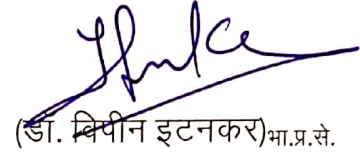 (डॉ. विपीन इटनकर)भा.प्र.से.